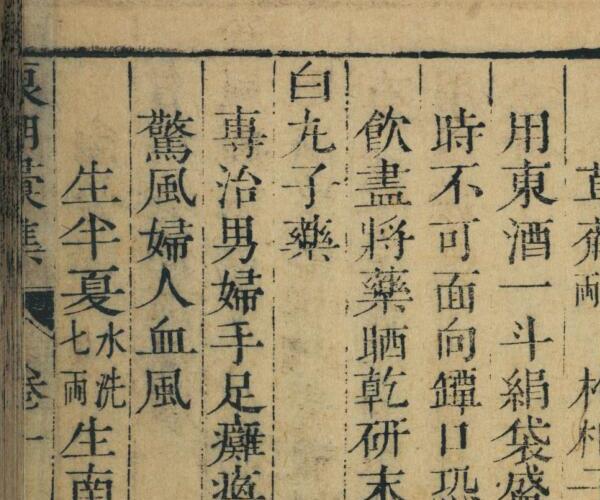 兩
用東酒一斗絹袋盛
時不可面向鐔口恐
飲盡將藥晒乾研末
白丸子藥
專治男婦手足癱瘓
驚風婦人血風
生半夏水洗七兩生南
卷一